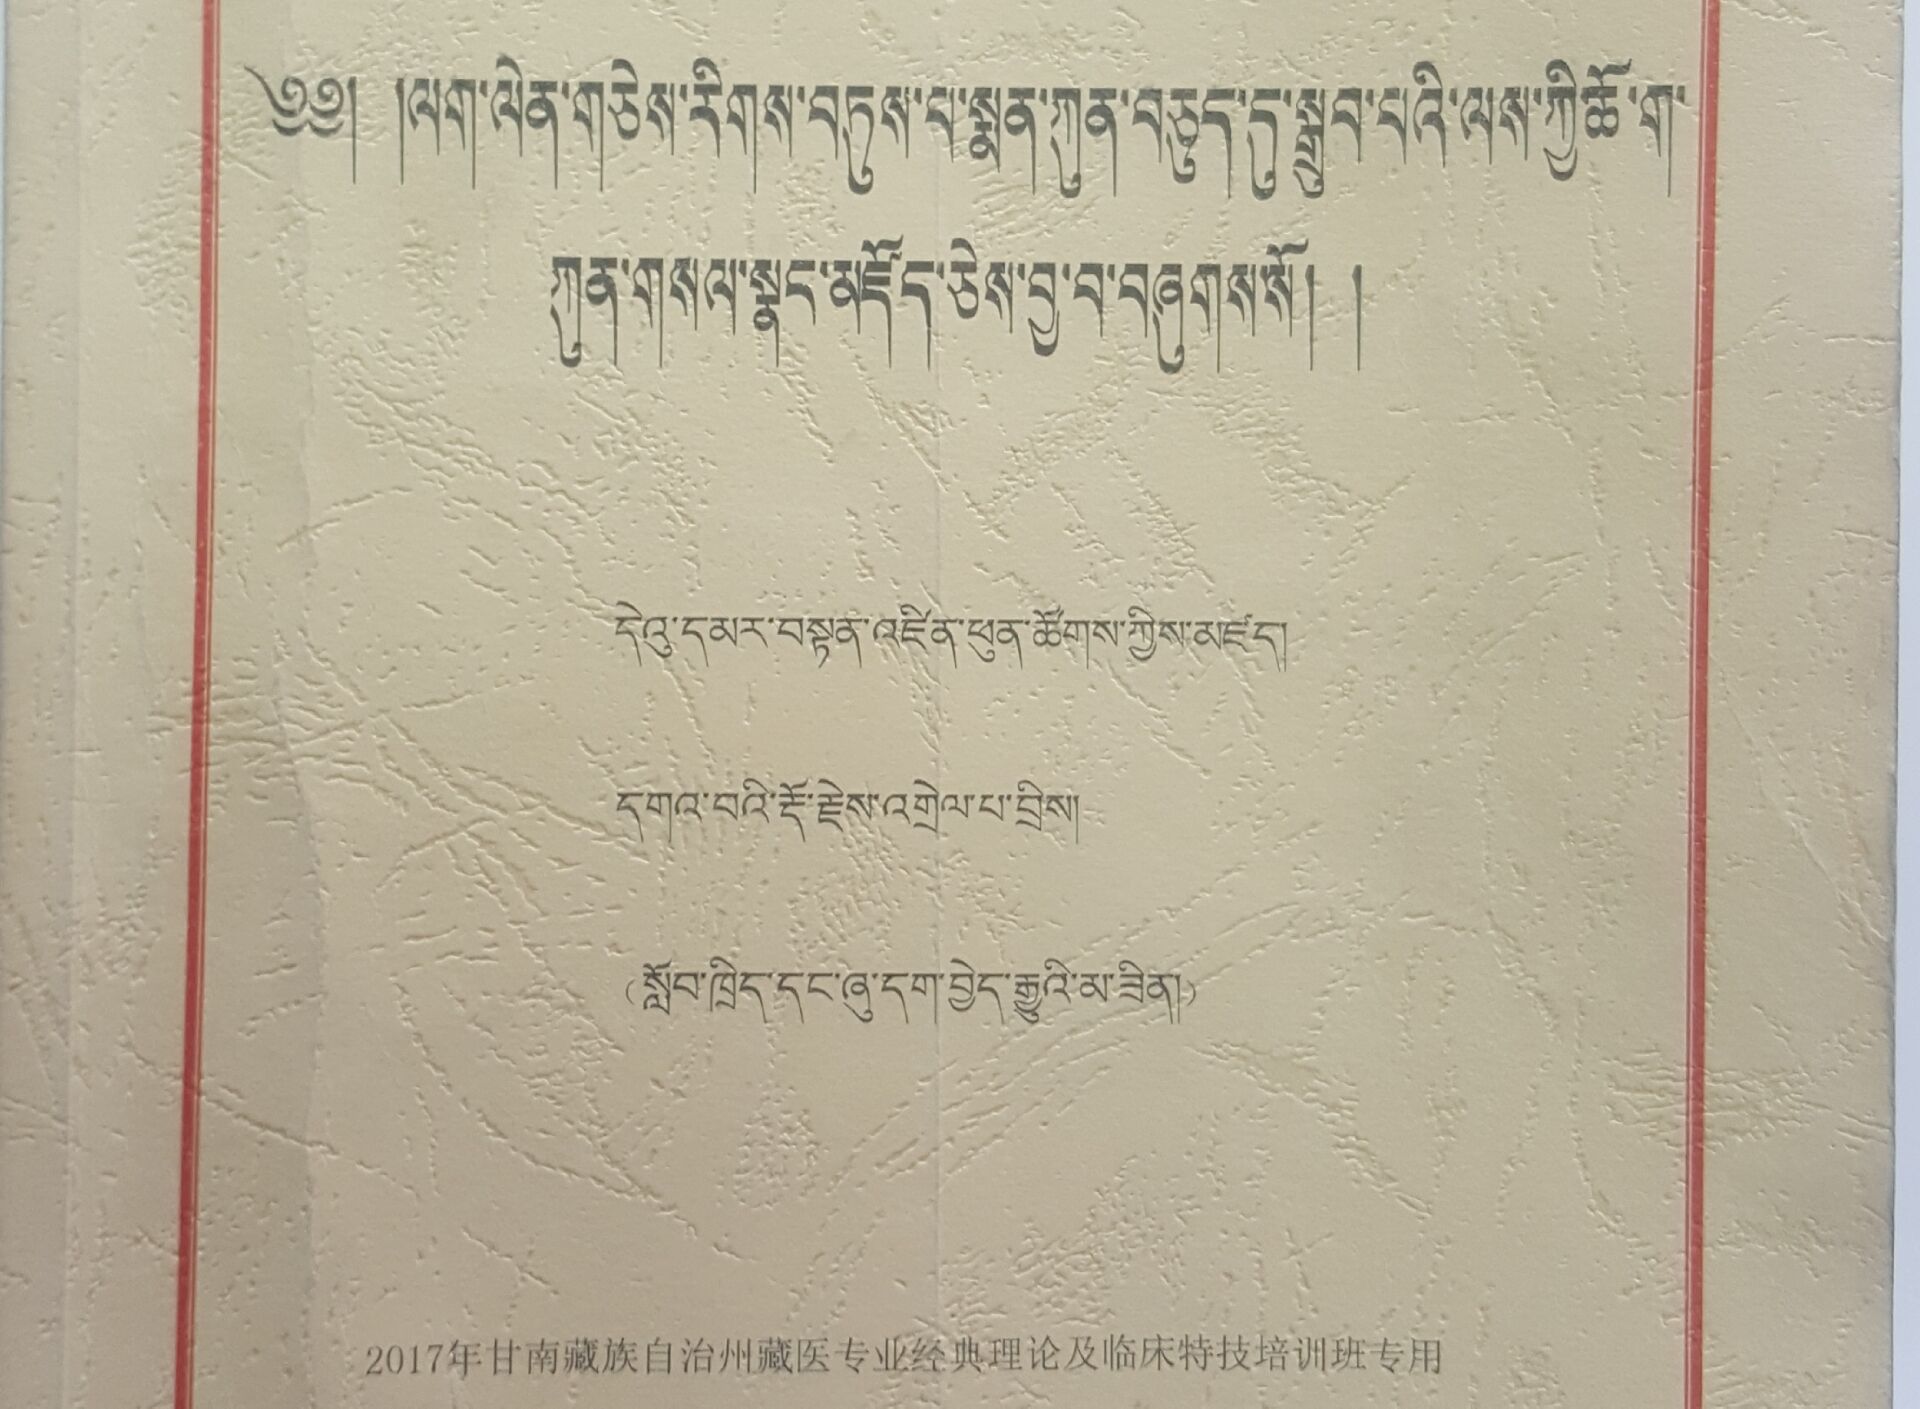 ༄༅། །ལག་ལེན་གཅེས་རིགས་བཏུས་པ་སྨན་ཀུན་བཅུད་དུ་སྒྲུབ་པའི་ལས་ཀྱི་ཆོ་ག་
ཀུན་གསལ་སྣང་མཛོད་ཅེས་བྱ་བ་བཞུགས་སོ། །
དེའུ་དམར་བསྟན་འཛིན་ཕུན་ཚོགས་ཀྱིས་མཛད།
དགའ་བའི་རྡོ་རྗེས་འགྲེལ་པ་བྲིས།
(སློབ་ཁྲིད་དང་ཞུ་དག་བྱེད་རྒྱུའི་མ་ཟིན།)
2017年甘南藏族自治州藏医专业经典理论及临床特技培训班专用